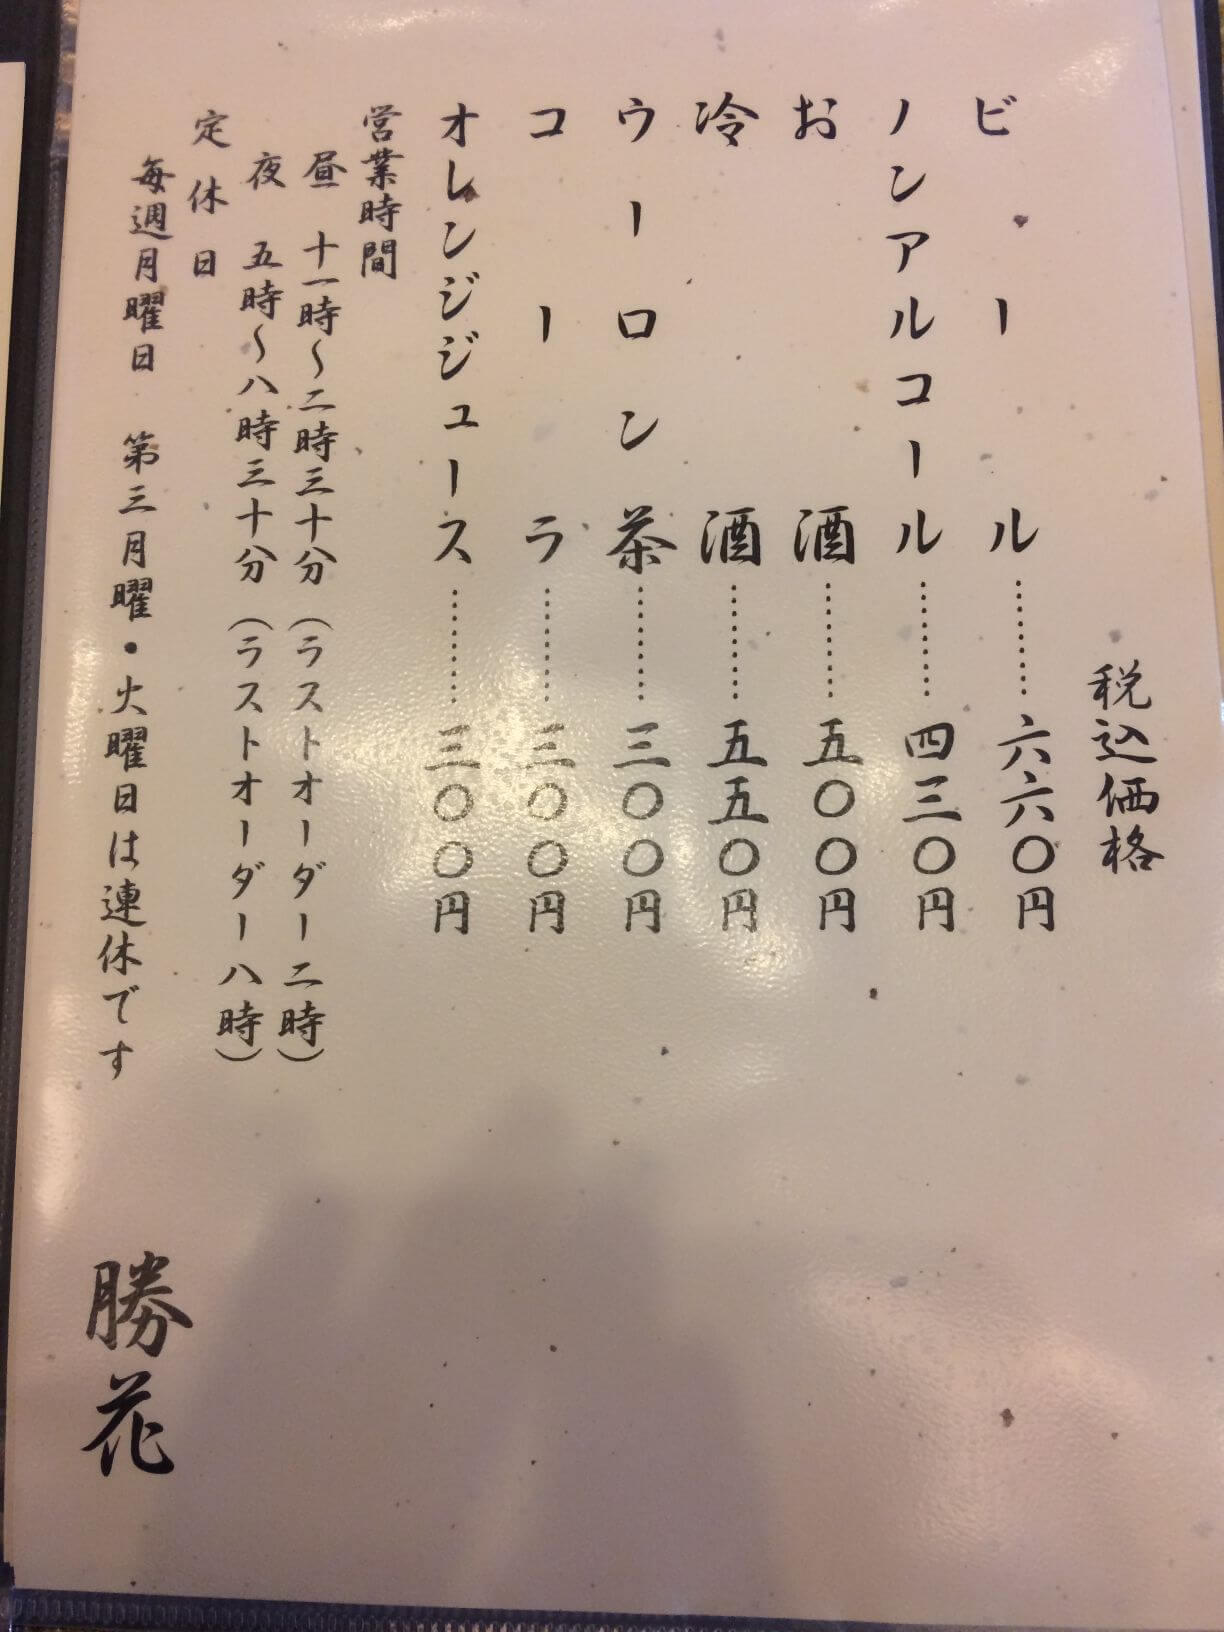 税込価格
ビール………六六〇円
ノンアルコール………四三〇円
お酒………五〇〇円
冷酒………五五〇円
ウーロン茶………三〇〇円
コーラ………三〇〇円
オレンジジュース………三〇〇円
営業時間
昼 十一時～二時三十分（ラストオーダー二時）
夜 五時～八時三十分（ラストオーダー八時）
定休日
毎週月曜日 第三月曜・火曜日は連休です
勝花